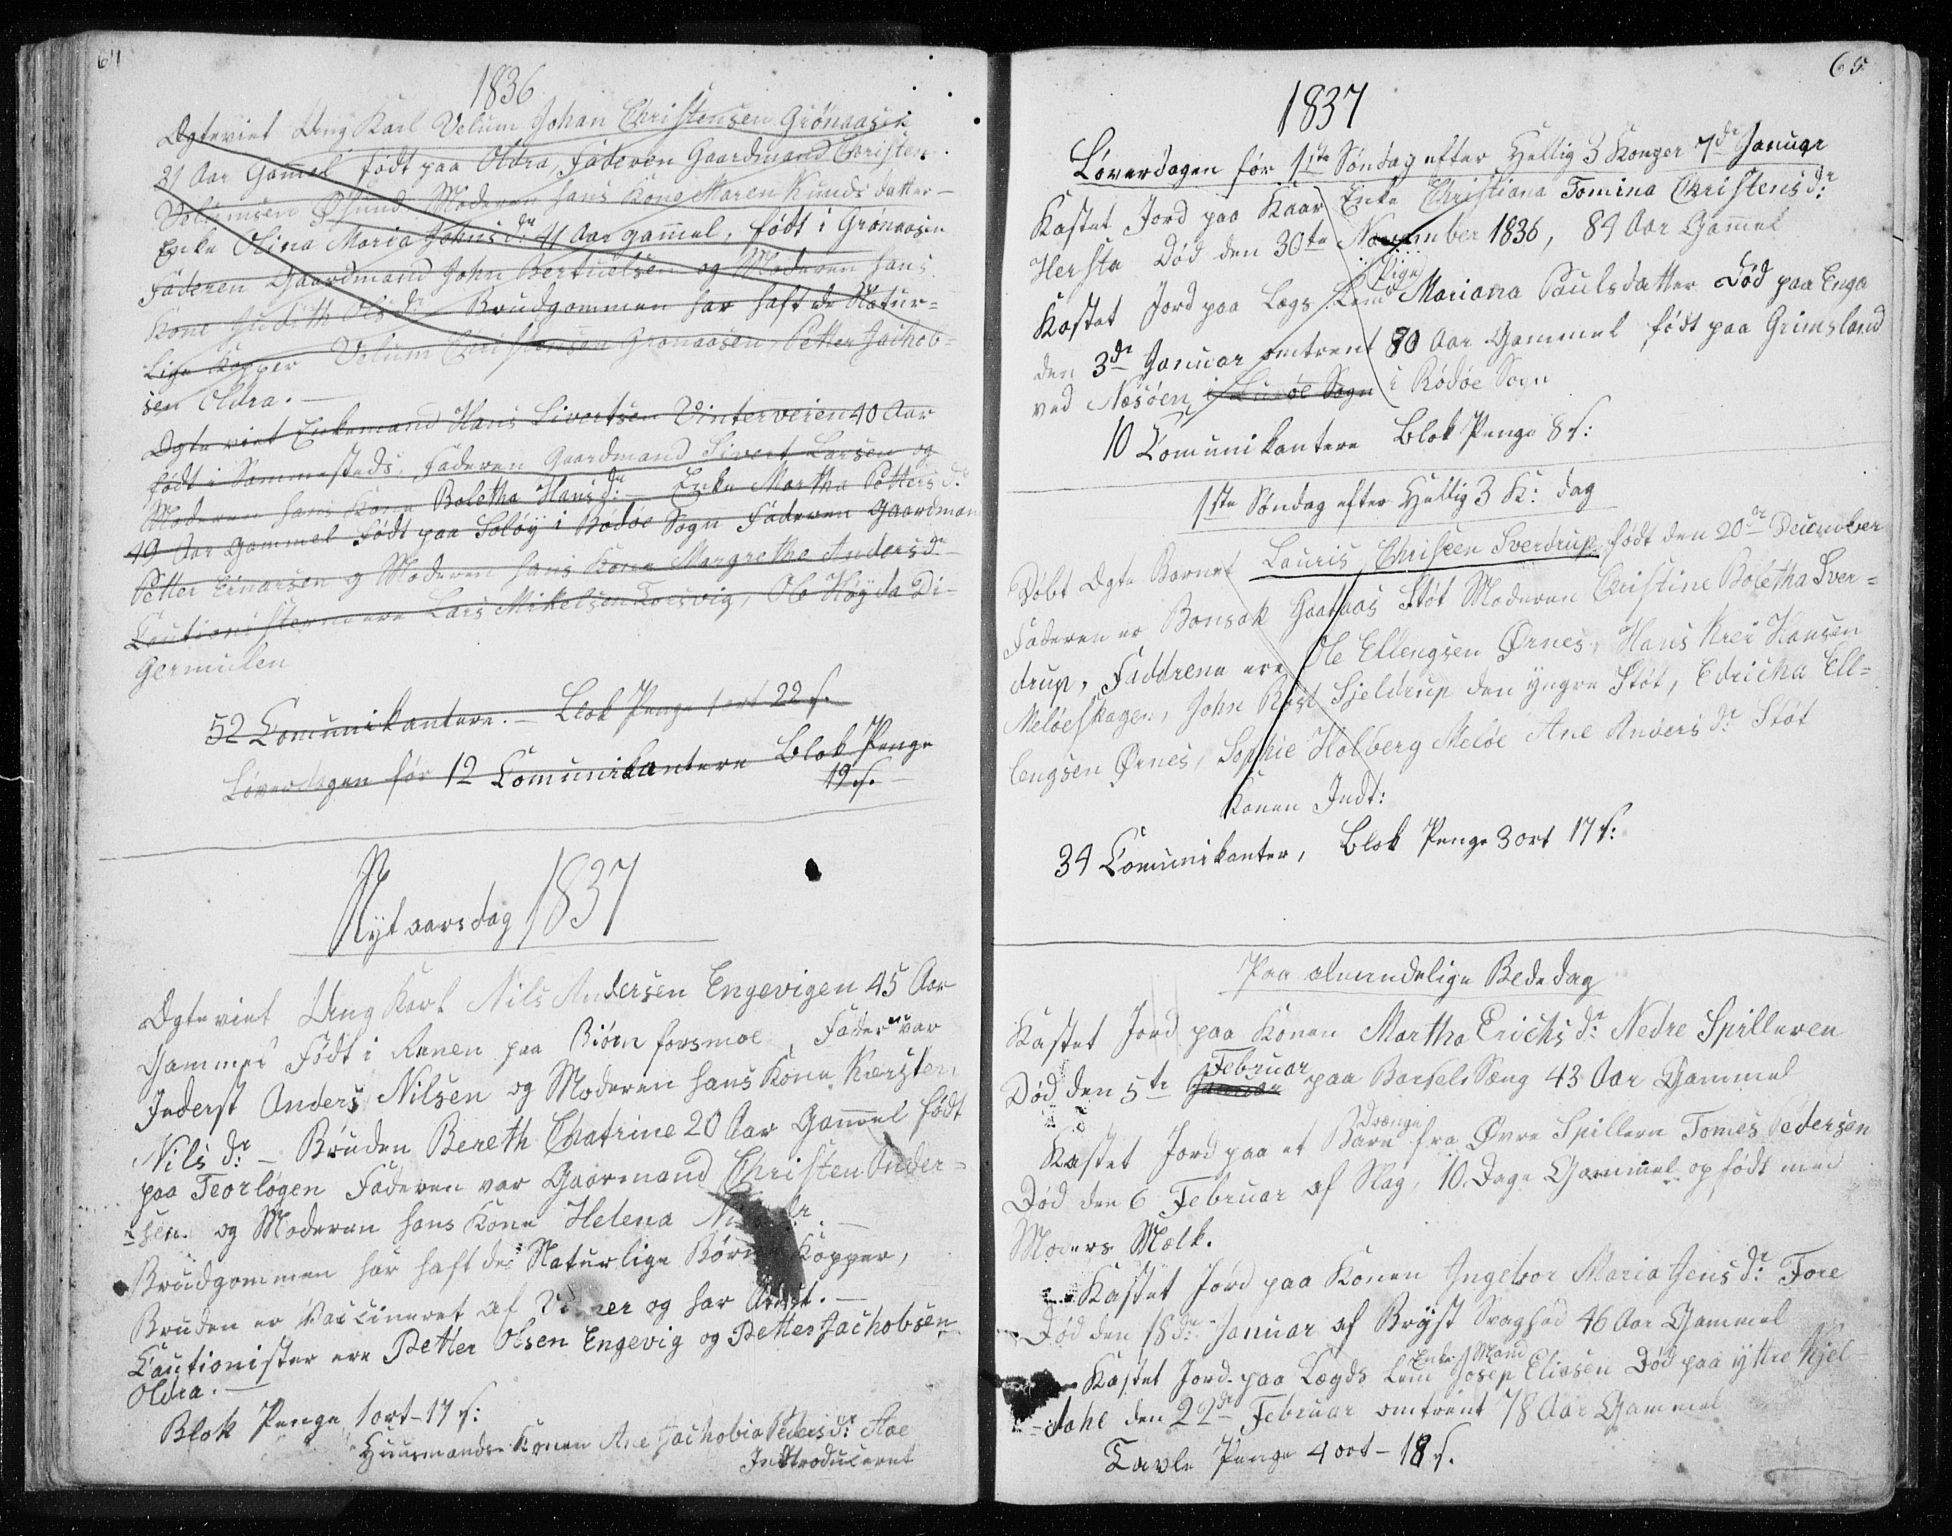 64
1836
Ægteviet Ung Karl Velum Johan Christensen Grönaasen
21 Aar Gam̄el født paa Oldra, Faderen Gaardmand Christen
Volumsen Øsund. Moderen hans Kone Maren Knuds datter —
Enke Olina Maria Johns dr 41 Aar gam̄el, født i Grönaasen
Faderen Gaardmand John Bertuelsen og Moderen hans
Kone Judith Ols dr Brudgommen har haft de Natur=
lige Kopper Velum Christensen Gronaasen, Petter Jachob=
sen Oldra. —
Ægteviet Enkemand Hans Sivertsen Vinterveien 40 Aar
født i Sammesteds, Faderen Gaardmand Sivert Larsen og
Moderen hans Kone Boletha Hans dr: Enke Martha Petters dr
49 Aar Gammel Født paa Soløy i Bodöe Sogn Faderen Gaardman
Petter Einarsen og Moderen hans Kone Margrethe Anders dr
Cautionisterne ere Lars Mikelsen Torsvig, Ole Höyda Di=
germulen
52 Comunikantere. — Blok Penge 1 ort 22 s.
Løverdagen før 12 Comunikantere Blok Penge
19 s. —
Nyt aarsdag 1837
Ægteviet Ung Karl Nils Andersen Engevigen 45 Aar
Gammel Født i Ranen paa Biörn forsmoe, Faderen var
Inderst Anders Nilsen og Moderen hans Kone Kiersten
Nils dr: — Bruden Bereth Chatrine 20 Aar Gam̄el født
paa Teorlogen Faderen var Gaarmand Christen Ander=
sen. og Moderen hans Kone Helena Nils dr —
Brudgommen har haft de Naturlige Börne Kopper,
Bruden er Vaccineret af og har Attest. —
Cautionister ere Petter Olsen Engevig og Petter Jachobsen
Oldra. —
Blok Penge 1 ort – 17 s:
Huusmands Konen Ane Jachobia Peders dr: Aae
Introduceret
65
1837
Løverdagen før 1ste Søndag efter Hellig 3 Konger 7de Januar
Kastet Jord paa Kaar Enke Christiana Tomina Christens dr:
Hersta Død den 30te November 1836, 84 Aar Gam̄el
Kastet Jord paa Lægs Lem Pige Mariana Paulsdatter Død paa Enga
den 3de Januar omtrent 80 Aar Gammel født paa Grimsland
ved Næsöen, i Luröe Sogn i Rödöe Sogn
10 Comunikantere Blok Penge 8 s:
1ste Søndag efter Hellig 3 K: dag
Døbt Ægte Barnet Lauris Christen Sverdrup født den 20de December
Faderen er Bonsak Gaaraas Støt Moderen Christine Boletha Sver=
drup, Faddrene ere Ole Ellengsen Ørnes, Hans Krei Hansen
Meløeskagen, John Rist Sjeldrup den yngre Støt, Edricka Ell=
lengsen Ørnes, Sophie Holberg Meløe Ane Anders dr Støt
Konen Indt:
34 Comunikanter, Blok Penge 3 ort 17 s:
Paa almindelige Bededag
Kastet Jord paa Konen Martha Erichs dr: Nedre Spilleren
Død den 5te Januar Februar paa Barsel Sæng 43 Aar Gammel
Kastet Jord paa et Drænge Barn fra Øvre Spillern Tomes Pedersen
Død den 6 Februar af Slag, 10 Dage Gammel opfødt med
Moders Melk.
Kastet Jord paa Konen Ingebor Maria Jens dr: Fore
Død den 18de Januar af Bryst Svaghed 46 Aar Gammel
Kastet Jord paa Lægds Lem Enke Mand Josep Eliasen Død paa yttre Kjel=
dahl den 22de Februar omtrent 78 Aar Gammel
Tavle Penge 4 ort – 18 s.